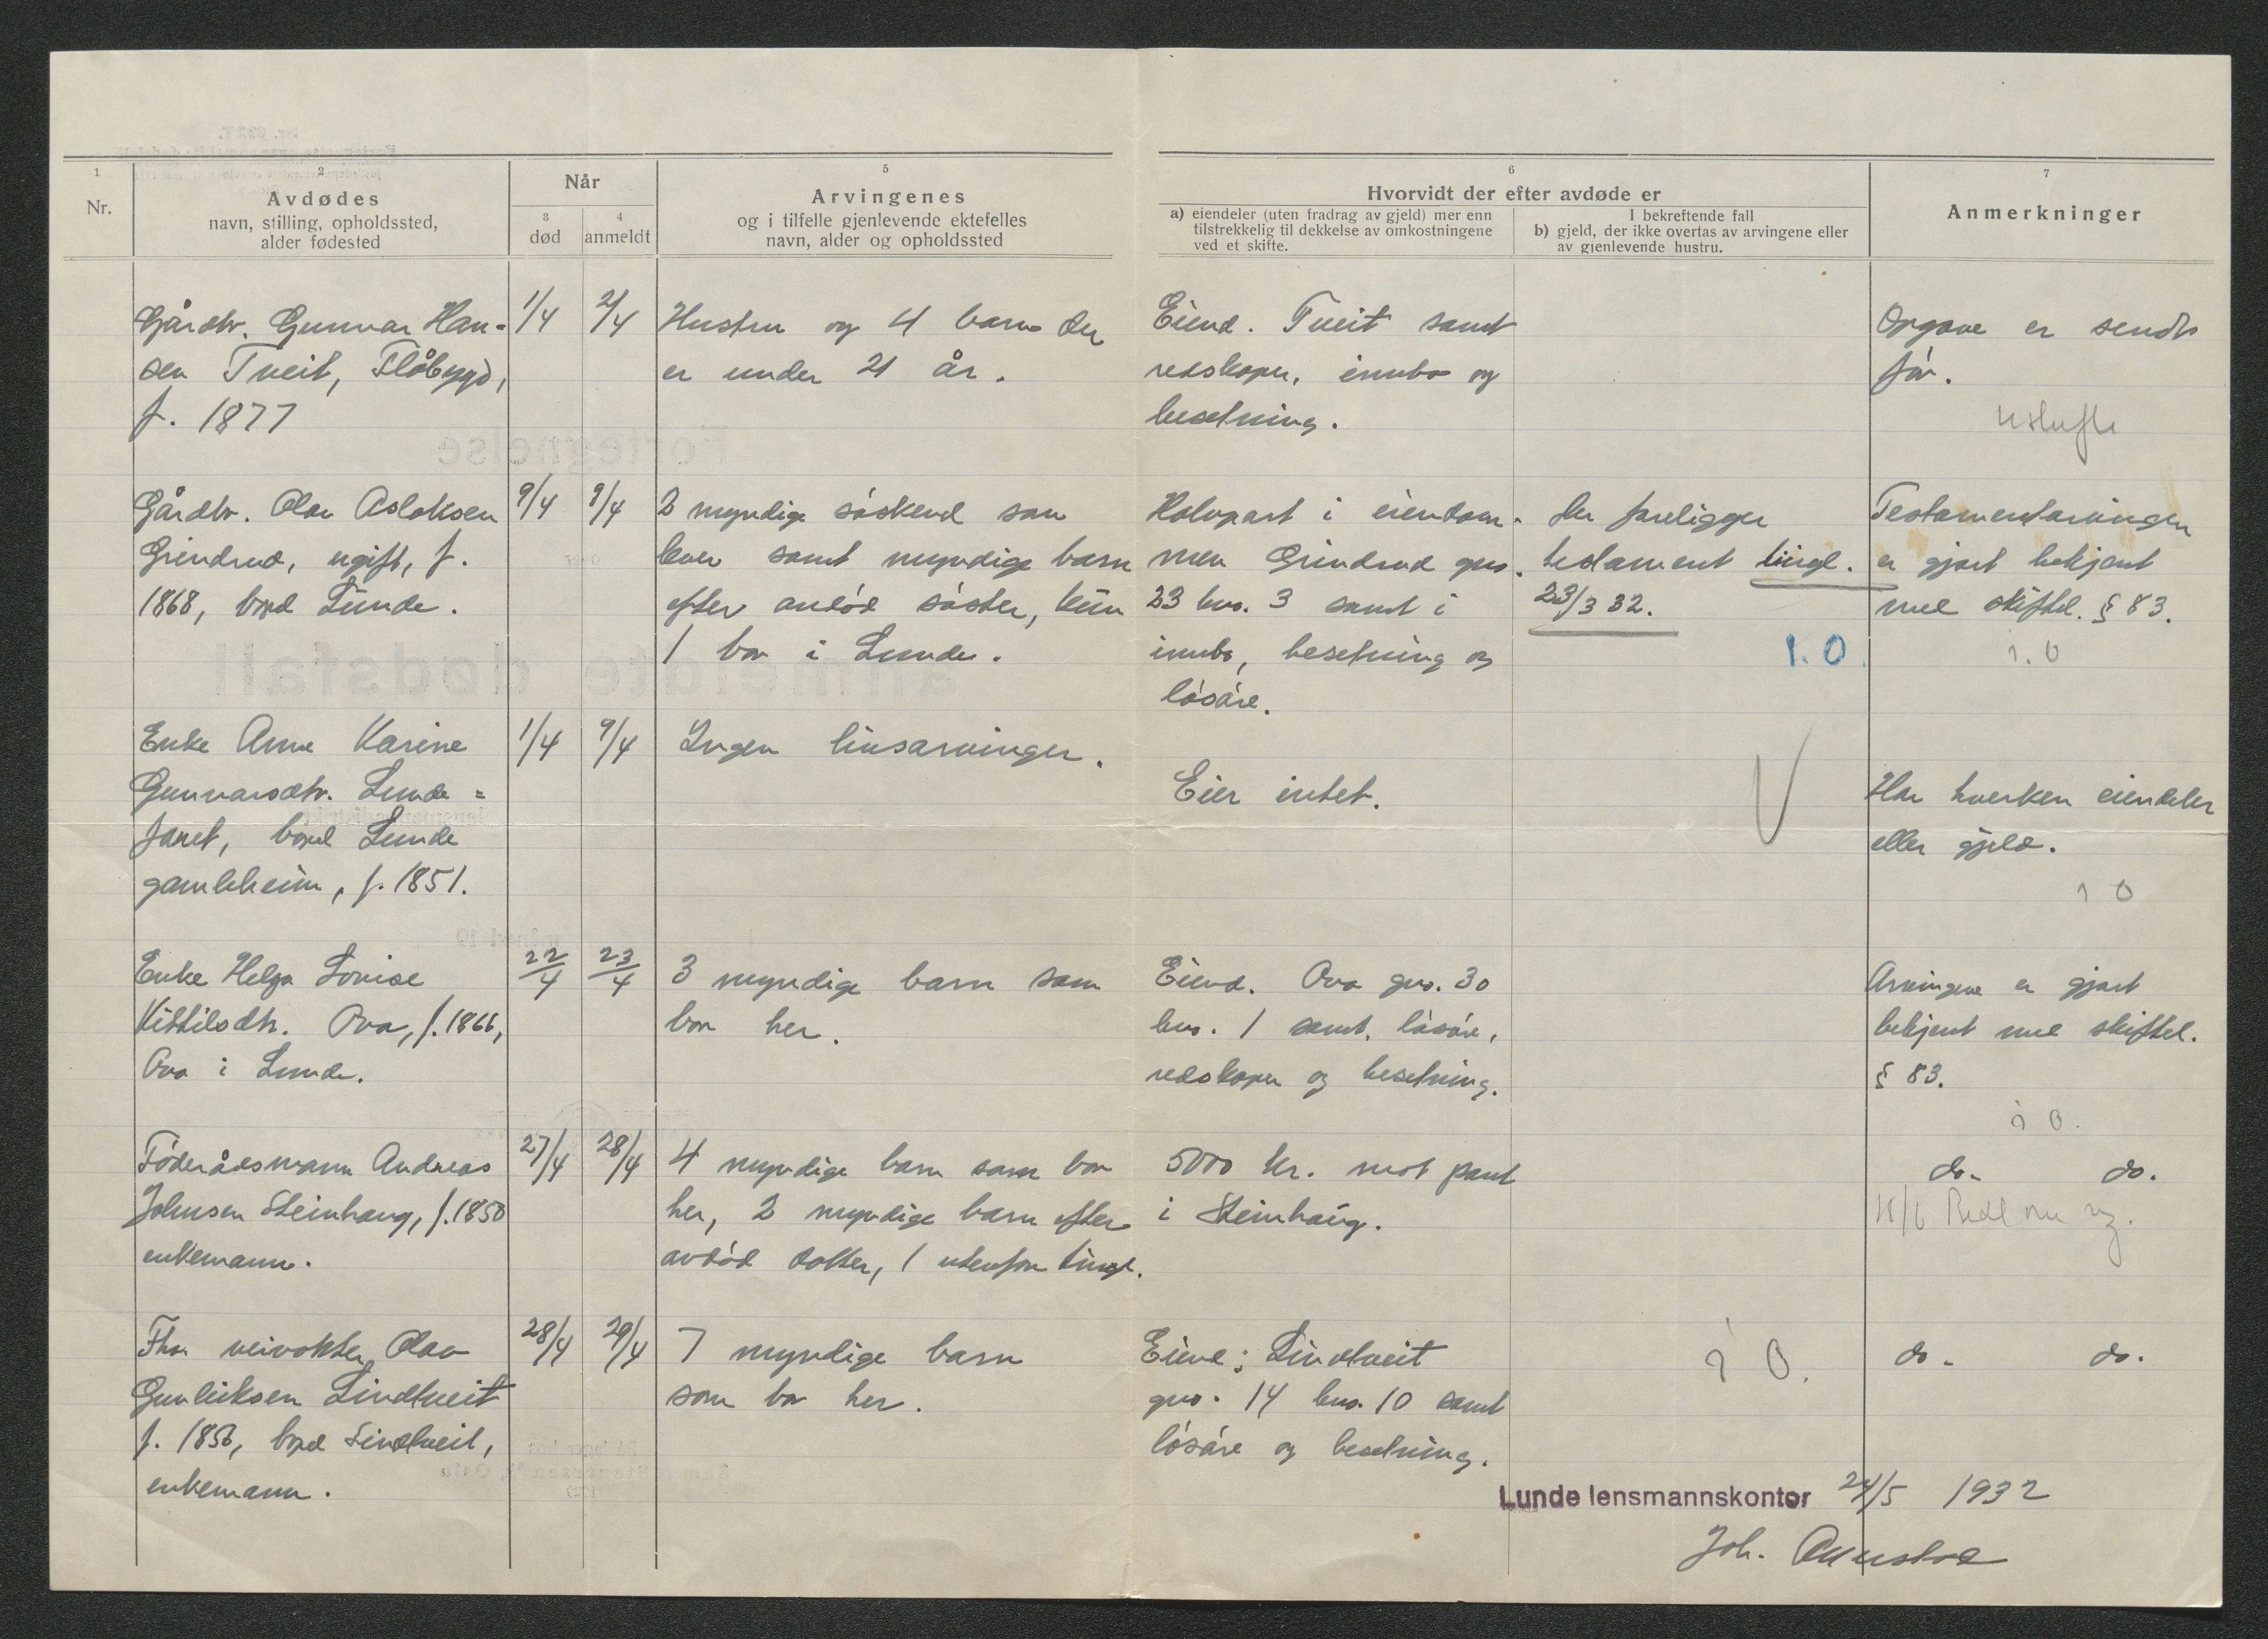 1
Nr.
2
Avdødes
navn, stilling, opholdssted,
alder fødested
Når
3
død
4
anmeldt
5
Arvingenes
og i tilfelle gjenlevende ektefelles
navn, alder og opholdssted
6
Hvorvidt der efter avdøde er
a) eiendeler (uten fradrag av gjeld) mer enn
tilstrekkelig til dekkelse av omkostningene
ved et skifte.
I bekreftende fall
b) gjeld, der ikke overtas av arvingene eller
av gjenlevende hustru.
7
Anmerkninger
Gårdbr. Gunnar Han-
sen Tveit, Flåbygd,
f. 1877
1/4
2/4
Hustru og 4 barn der
er under 21 år.
Eiend. Tveit samt
redskaper, innbo og
besetning.
Opgave er sendt
før.
Gårdbr. Olav Aslaksen
Grindrud, ugift, f.
1868, bopæl Lunde.
9/4
9/4
2 myndige søskend som
lever samt myndige barn
efter avdød søster, kun
1 bor i Lunde.
Halvpart i eiendom-
men Grindrud gno.
23 bno. 3 samt i
innbo, besetning og
løsøre.
Der foreligger
testament tingl.
23/3 32.
1.0.
Testamentarvingen
er gjort bekjent
med skiftel. § 83.
1.0
Enke Anne Karine
Gunnarsdtr. Lunde=
faret, bopæl Lunde
gamleheim, f. 1851.
1/4
9/4
Ingen livsarvinger.
Eier intet.
Har hverken eiendeler
eller gjeld.
1 0
Enke Helga Lovise
Kittilsdtr. Ova, f. 1866,
Ova i Lunde.
22/4
23/4
3 myndige barn som
bor her.
Eiend. Ova gno. 30
bno. 1 samt løsøre,
redskaper og besetning.
Arvingene er gjort
bekjent med skiftel.
§ 83.
1 0.
Føderådsmann Andreas
Johnsen Steinhaug, f. 1850
enkemann.
27/4
28/4
4 myndige barn som bor
her, 2 myndige barn efter
avdød dotter, 1 utenfor tingl.
5000 kr. mot pant
i Steinhaug.
do- do.
Fhv. veivokter Olav
Gunleiksen Lindtveit
f. 1856, bopæl Lindtveit,
enkemann.
28/4
29/4
7 myndige barn
som bor her.
Eiend; Lindtveit
gno. 14 bno. 10 samt
løsøre og besetning.
1 0.
do- do.
Lunde lensmannskontor 24/5 1932
Joh.